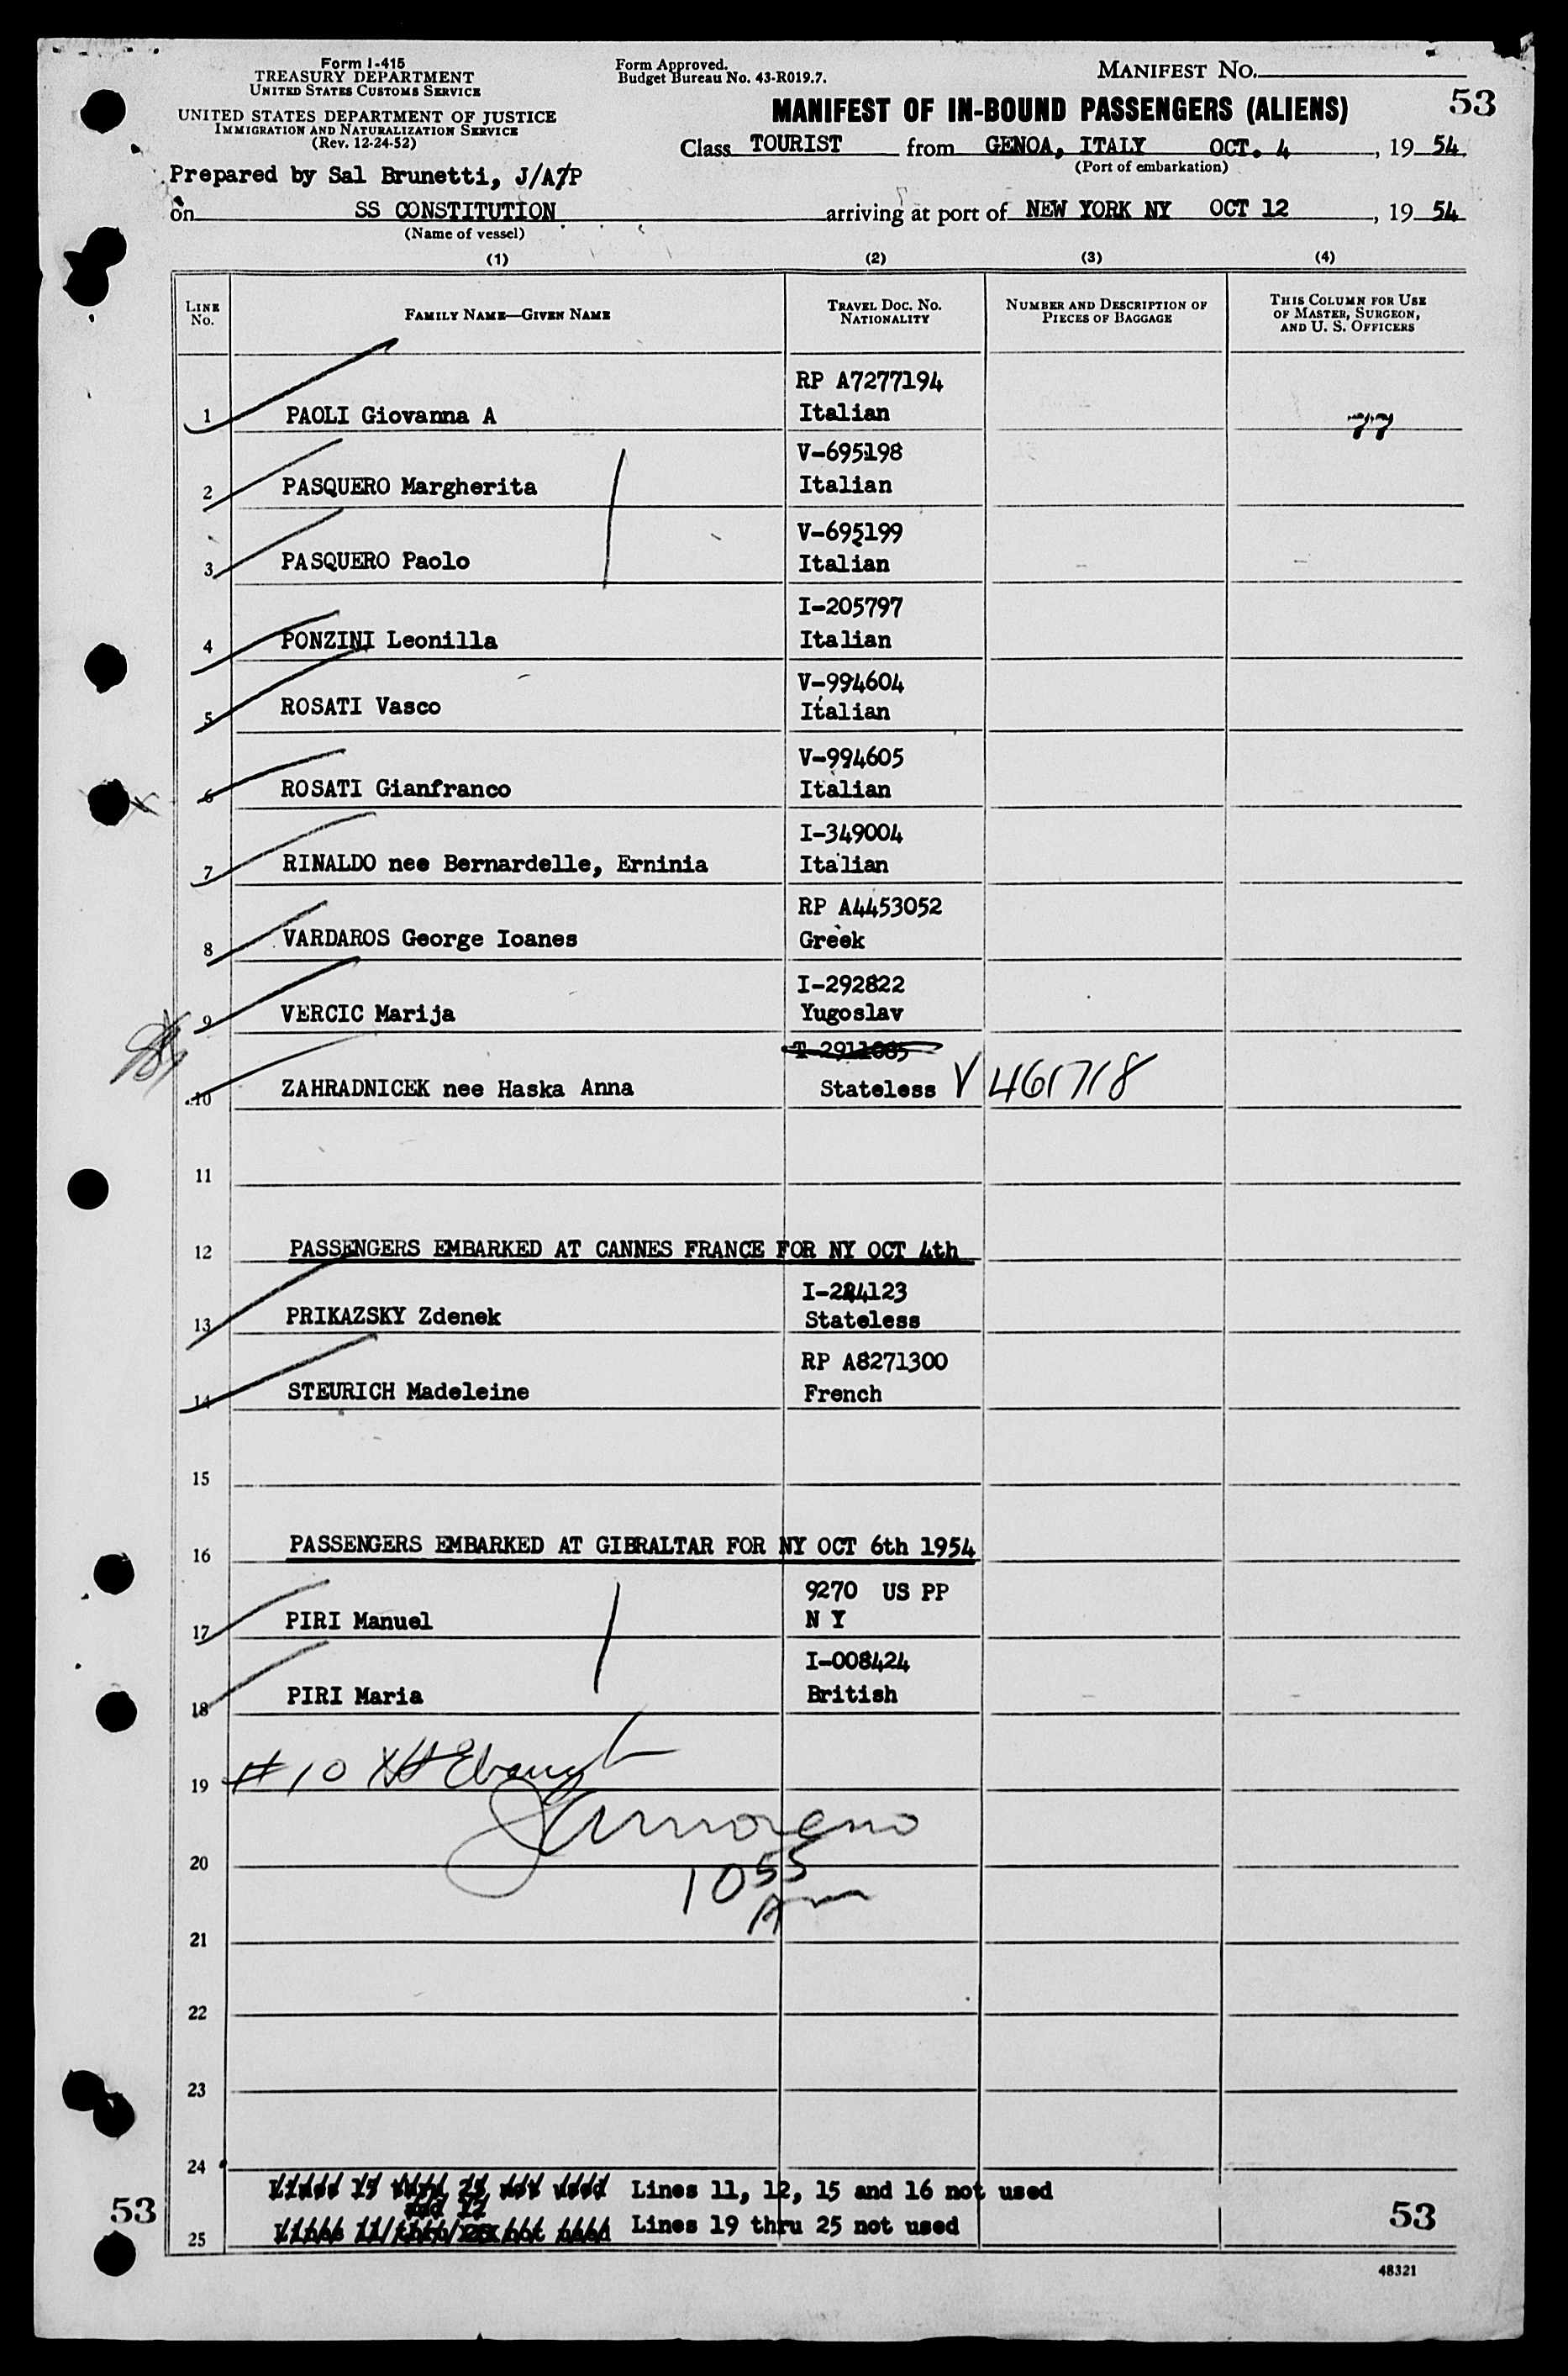 Form I-415
TREASURY DEPARTMENT
UNITED STATES CUSTOMS SERVICE
UNITED STATES DEPARTMENT OF JUSTICE
IMMIGRATION AND NATURALIZATION SERVICE
(Rev. 12-24-52)
Form Approved.
Budget Bureau No. 43-R019.7.
MANIFEST NO.
53
MANIFEST OF IN-BOUND PASSENGERS (ALIENS)
Class TOURIST from GENOA, ITALY OCT. 4, 19 54
(Port of embarkation)
Prepared by Sal Brunetti, J/A/P
on SS CONSTITUTION arriving at port of NEW YORK NY OCT 12, 19 54
(Name of vessel)
(1) (2) (3) (4)
LINE NO.
FAMILY NAME—GIVEN NAME
TRAVEL DOC. NO. NATIONALITY
NUMBER AND DESCRIPTION OF PIECES OF BAGGAGE
THIS COLUMN FOR USE OF MASTER, SURGEON, AND U. S. OFFICERS
RP A7277194
1 PAOLI Giovanna A Italian 77
V-695198
2 PASQUERO Margherita Italian
V-695199
3 PASQUERO Paolo Italian
I-205797
4 PONZINI Leonilla Italian
V-994604
5 ROSATI Vasco Italian
V-994605
6 ROSATI Gianfranco Italian
I-349004
7 RINALDO nee Bernardelle, Erninia Italian
RP A4453052
8 VARDAROS George Ioanes Greek
I-292822
9 VERCIC Marija Yugoslav
T-2911085
10 ZAHRADNICEK nee Haska Anna Stateless V 461718
11
12 PASSENGERS EMBARKED AT CANNES FRANCE FOR NY OCT 4th
I-284123
13 PRIKAZSKY Zdenek Stateless
RP A8271300
14 STEURICH Madeleine French
15
16 PASSENGERS EMBARKED AT GIBRALTAR FOR NY OCT 6th 1954
9270 US PP
17 PIRI Manuel N Y
I-008424
18 PIRI Maria British
19 #10
20
10 55
Am
21
22
23
24
Lines 15 thru 25 not used Lines 11, 12, 15 and 16 not used
and 12
25 Lines 11/thru/25 not used Lines 19 thru 25 not used
53
53
48321